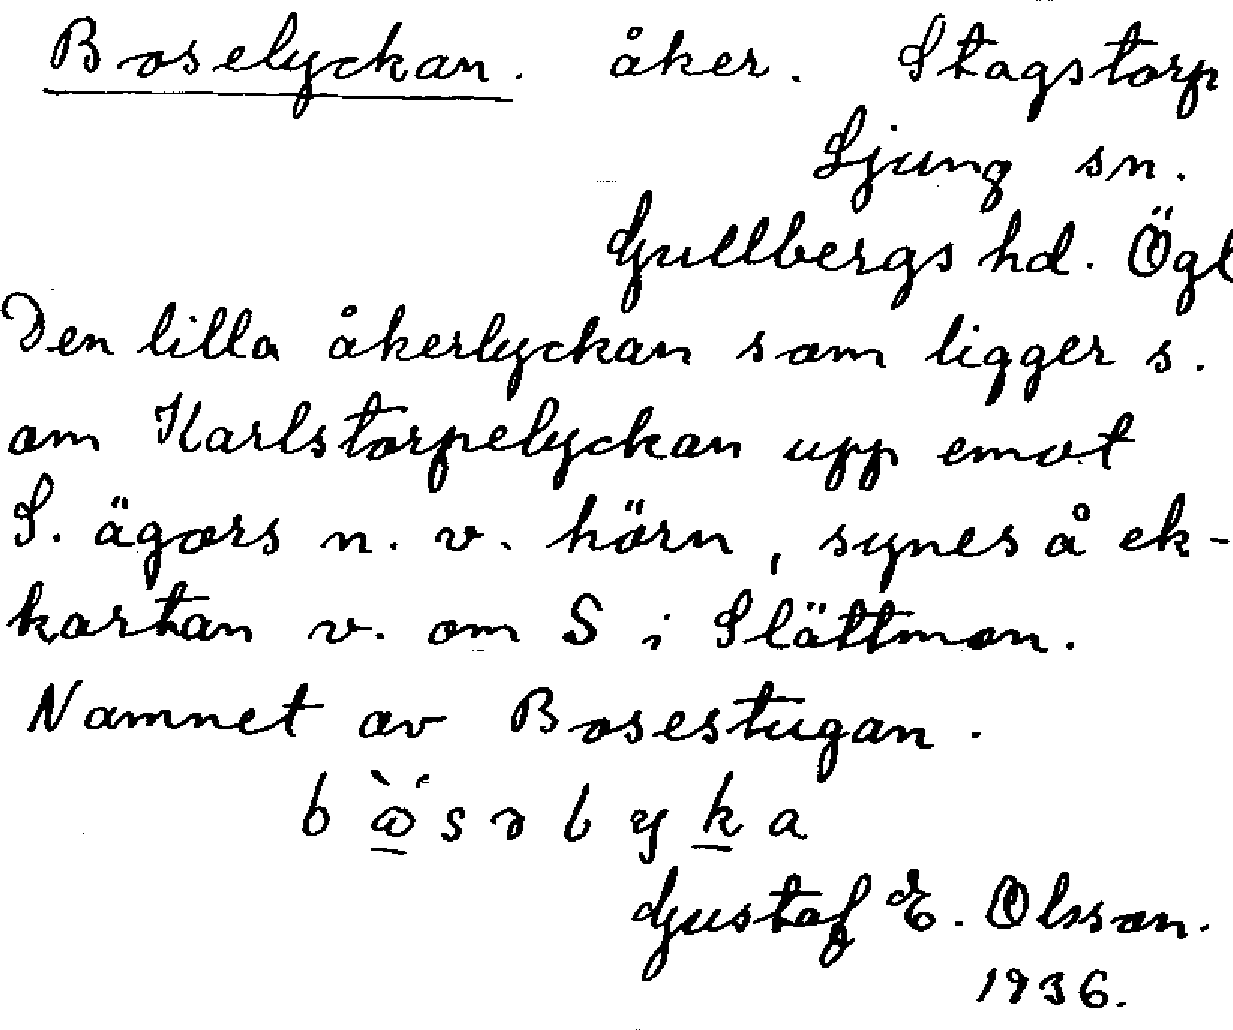 Boselyckan. åker. Stagstorp
Ljung sn.
Gullbergs hd. Ögl
Den lilla åkerlyckan som ligger s.
om Karlstorpelyckan upp emot
S. ägors n. v. hörn, synes å ek-
kartan v. om S i Slättmon.
Namnet av Bosestugan.
Gustaf E. Olsson.
1936.